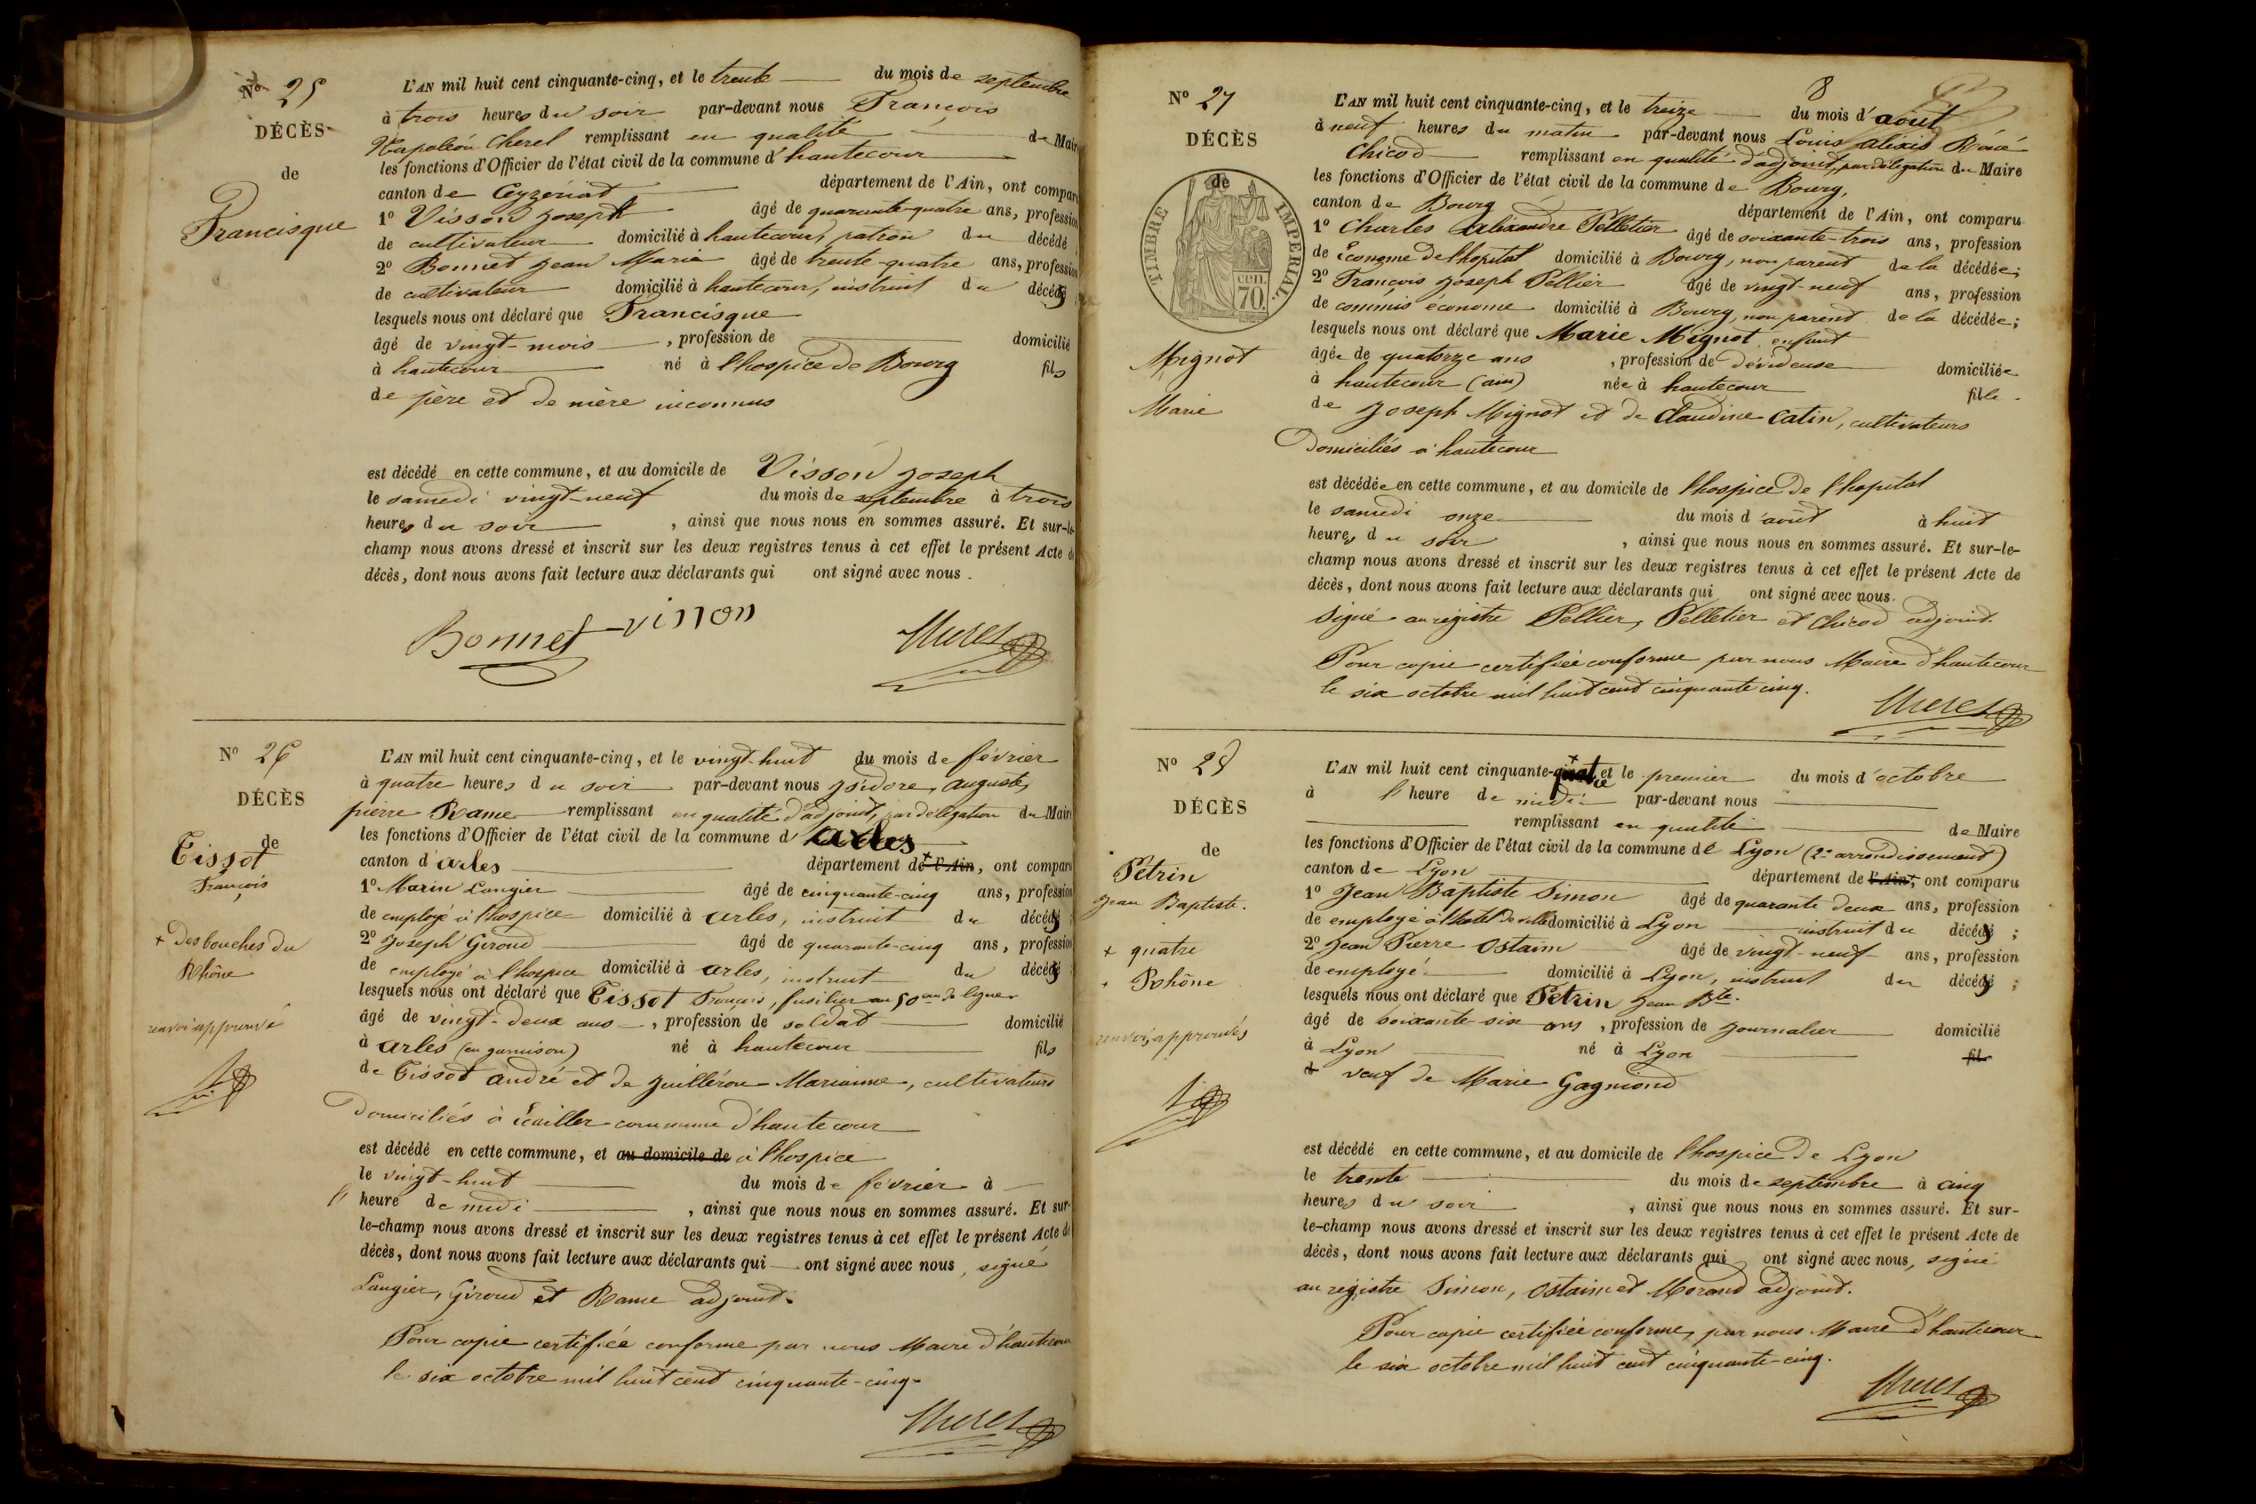 Nº 25
DÉCÈS
de
Francisque
L'AN mil huit cent cinquante-cinq, et le trente du mois de septembre
à trois heures du soir par-devant nous François
Napoléon Cherel remplissant en qualité de Maire
les fonctions d'Officier de l'état civil de la commune d'hautecour
canton de Ceyzériat département de l'Ain, ont comparu
1º Visson Joseph âgé de quarante-quatre ans, profession
de cultivateur domicilié à hautecour, patron du décédé
2º Bonnet Jean Marie âgé de trente-quatre ans, profession
de cultivateur domicilié à hautecour, instruit du décédé
lesquels nous ont déclaré que Francisque
âgé de vingt-mois, profession de domicilié
à hautecour né à l'hospice de Bourg fils
de père et de mère inconnus
est décédé en cette commune, et au domicile de Visson Joseph
le samedi vingt-neuf du mois de septembre à trois
heures du soir, ainsi que nous nous en sommes assuré. Et sur-le-
champ nous avons dressé et inscrit sur les deux registres tenus à cet effet le présent Acte de
décès, dont nous avons fait lecture aux déclarants qui ont signé avec nous.
Bonnet visson Cherel
Nº 26
DÉCÈS
de
Tissot
François
+ Des bouches du
Rhône
renvoi approuvé
L'AN mil huit cent cinquante-cinq, et le vingt-huit du mois de février
à quatre heures du soir par-devant nous Isidore, auguste,
pierre Rame remplissant en qualité d'adjoint, par délégation du Maire
les fonctions d'Officier de l'état civil de la commune d'arles
canton d'arles département de + l'Ain, ont comparu
1º Marin Langier âgé de cinquante-cinq ans, profession
de employé à l'hospice domicilié à arles, instruit du décédé
2º Joseph Giroud âgé de quarante-cinq ans, profession
de employé à l'hospice domicilié à arles, instruit du décédé
lesquels nous ont déclaré que Tissot François, fusilier au 50me de ligne
âgé de vingt-deux ans, profession de soldat domicilié
à arles (en garnison) né à hautecour fils
de Tissot andré et de Juilléron Marianne, cultivateurs
domiciliés à Écuiller commune d'hautecour
est décédé en cette commune, et au domicile de à l'hospice
le vingt-huit du mois de février à
l'heure de midi, ainsi que nous nous en sommes assuré. Et sur-
le-champ nous avons dressé et inscrit sur les deux registres tenus à cet effet le présent Acte de
décès, dont nous avons fait lecture aux déclarants qui ont signé avec nous, signé
Langier, Giroud et Rame adjoint.
Pour copie certifiée conforme par nous Maire d'hautecour
le six octobre mil huit cent cinquante-cinq.
Cherel
8
Nº 27
DÉCÈS
de
TIMBRE IMPERIAL.
CEN. 70.
Mignot
Marie
L'AN mil huit cent cinquante-cinq, et le treize du mois d'août
à neuf heures du matin par-devant nous Louis alexis Réné
Chicod remplissant en qualité d'adjoint, par délégation du Maire
les fonctions d'Officier de l'état civil de la commune de Bourg,
canton de Bourg département de l'Ain, ont comparu
1º Charles Alexandre Pelletier âgé de soixante-trois ans, profession
de Économe de l'hôpital domicilié à Bourg, non parent de la décédée;
2º François Joseph Pellier âgé de vingt-neuf ans, profession
de commis économe domicilié à Bourg, non parent de la décédée;
lesquels nous ont déclaré que Marie Mignot enfant
âgée de quatorze ans, profession de dévideuse domiciliée
à hautecour (ain) née à hautecour fille
de Joseph Mignot et de Claudine Catin, cultivateurs
domiciliés à hautecour
est décédée en cette commune, et au domicile de l'hospice de l'hopital
le samedi onze du mois d'août à huit
heures du soir, ainsi que nous nous en sommes assuré. Et sur-le-
champ nous avons dressé et inscrit sur les deux registres tenus à cet effet le présent Acte de
décès, dont nous avons fait lecture aux déclarants qui ont signé avec nous.
signé au registre Pellier, Pelletier et Chicod adjoint.
Pour copie certifiée conforme par nous Maire d'hautecour
le six octobre mil huit cent cinquante cinq.
Cherel
Nº 28
DÉCÈS
de
Pétrin
Jean Baptiste.
+ quatre
+ Rhône
renvois approuvés
L'AN mil huit cent cinquante-quatre et le premier du mois d'octobre
à l'heure de midi par-devant nous
remplissant en qualité de Maire
les fonctions d'Officier de l'état civil de la commune de Lyon (2e arrondissement)
canton de Lyon département de l'Ain +, ont comparu
1º Jean Baptiste Simon âgé de quarante deux ans, profession
de employé à l'hôtel de ville domicilié à Lyon instruit du décédé;
2º Jean Pierre Ostaim âgé de vingt-neuf ans, profession
de employé domicilié à Lyon, instruit du décédé;
lesquels nous ont déclaré que Pétrin Jean Bte.
âgé de soixante-six ans, profession de Journalier domicilié
à Lyon né à Lyon fils
de veuf de Marie Gagniond
est décédé en cette commune, et au domicile de l'hospice de Lyon
le trente du mois de septembre à cinq
heures du soir, ainsi que nous nous en sommes assuré. Et sur-
le-champ nous avons dressé et inscrit sur les deux registres tenus à cet effet le présent Acte de
décès, dont nous avons fait lecture aux déclarants qui ont signé avec nous, signé
au registre Simon, Ostaim et Morand adjoint.
Pour copie certifiée conforme, par nous Maire d'hautecour
le six octobre mil huit cent cinquante-cinq.
Cherel